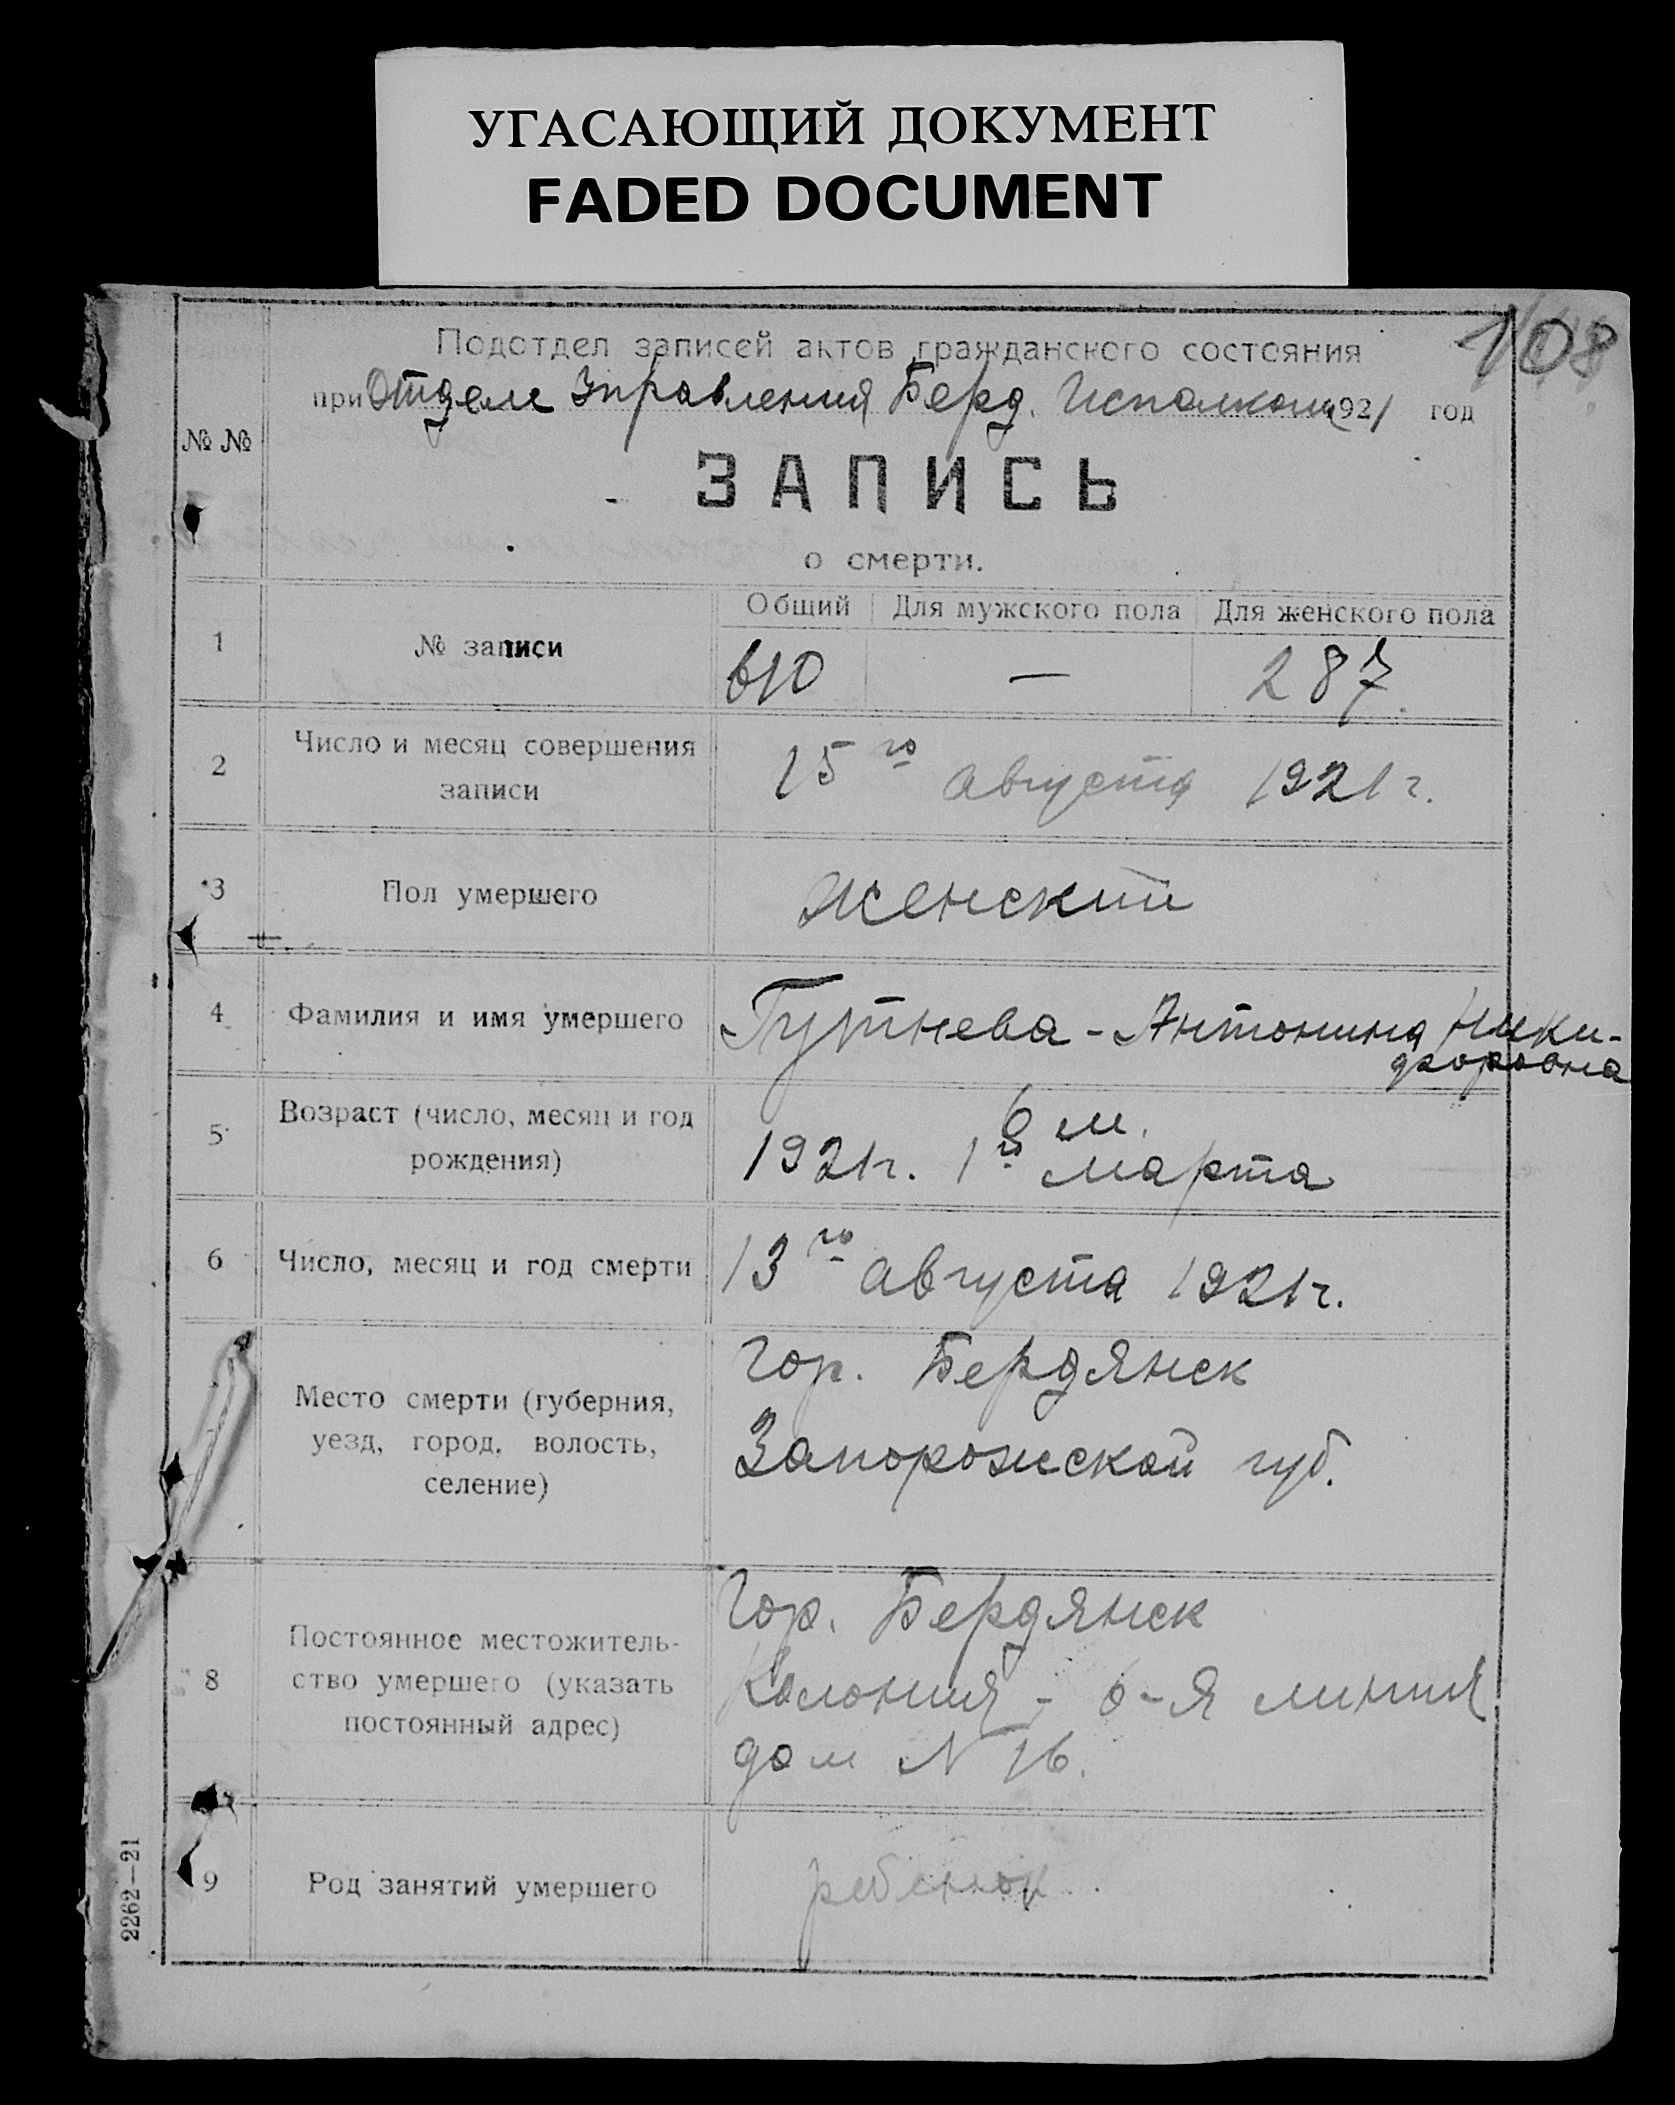 УГАСАЮЩИЙ ДОКУМЕНТ
FADED DOCUMENT
108
Подотдел записей актов гражданского состояния
при Отделе Управления Берд. Исполкома 1921 год
№ №
ЗАПИСЬ
о смерти.
Общий Для мужского пола Для женского пола
1 № записи 610 — 287.
2 Число и месяц совершения
записи
15го августа 1921 г.
3 Пол умершего женский
4 Фамилия и имя умершего Гутнева - Антонина Ники-
форовна
5 Возраст (число, месяц и год
рождения)
6 м.
1921 г. 1го марта
6 Число, месяц и год смерти 13го августа 1921 г.
Место смерти (губерния,
уезд, город, волость,
селение)
Гор. Бердянск
Запорожской губ.
8 Постоянное местожитель-
ство умершего (указать
постоянный адрес)
Гор. Бердянск
Колония - 6-я линия
дом N 16.
9 Род занятий умершего ребенок
2262—21